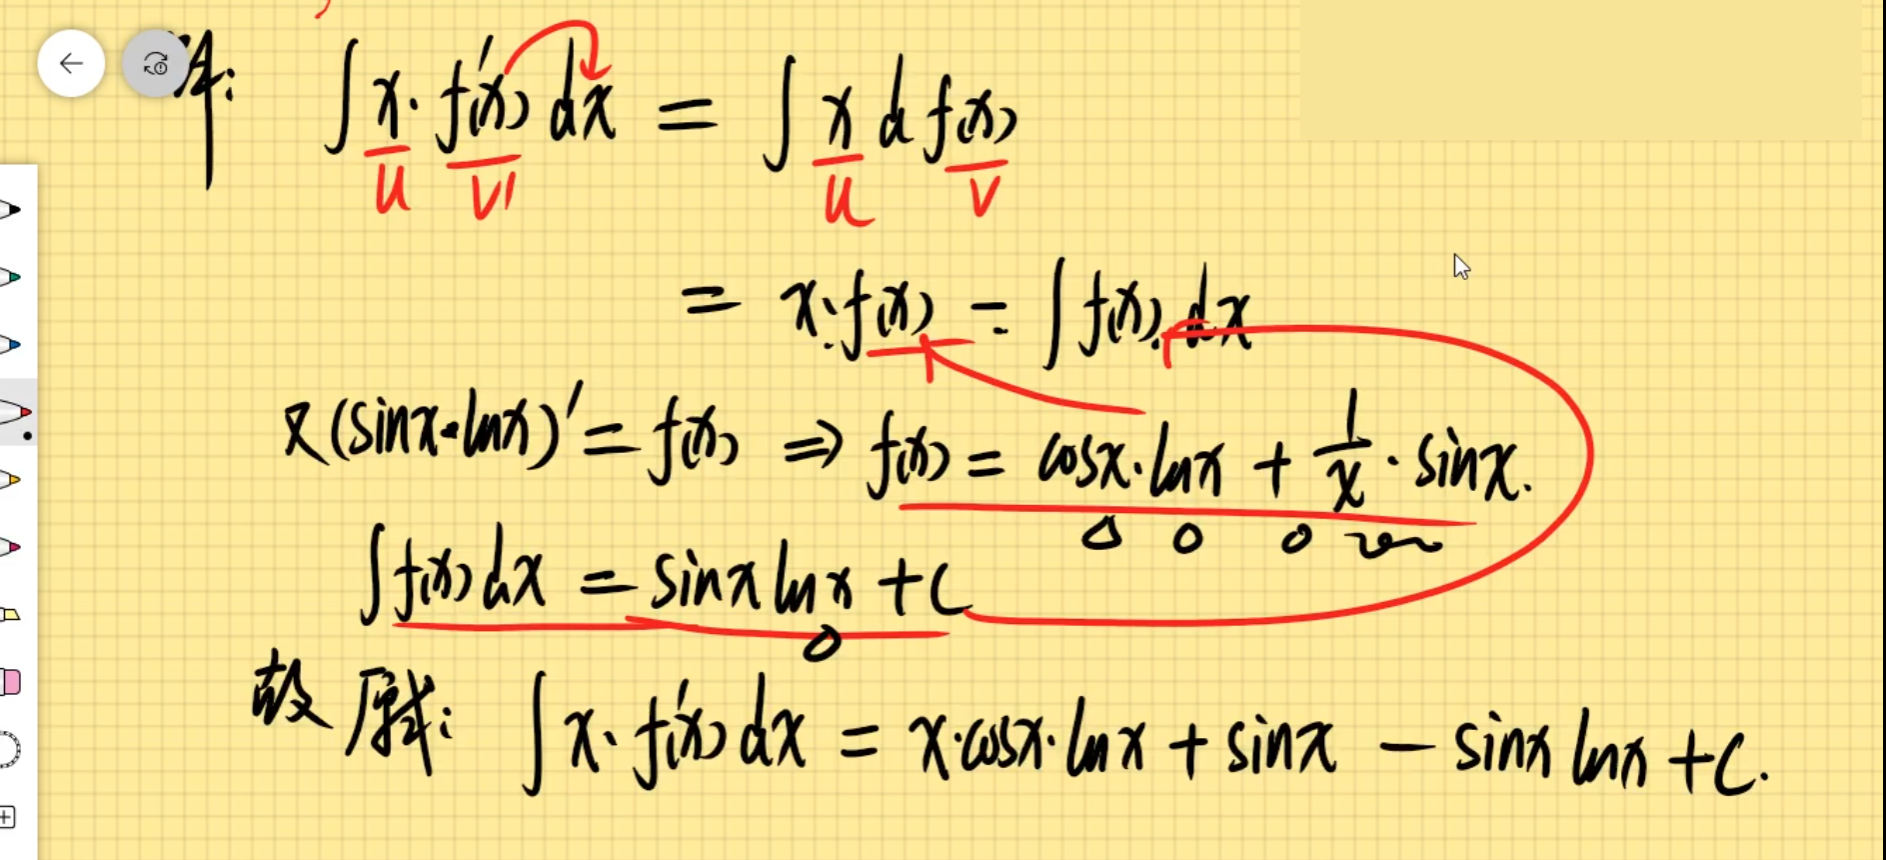 解: ∫ x· f′(x) dx = ∫ x d f(x)
u v′ u v
= x·f(x) - ∫ f(x) dx
又(sinx·lnx)′ = f(x) ⇒ f(x) = cosx·lnx + 1/x · sinx.
∫ f(x) dx = sinx lnx + C
故原式: ∫ x· f′(x) dx = x·cosx·lnx + sinx - sinx lnx + C.